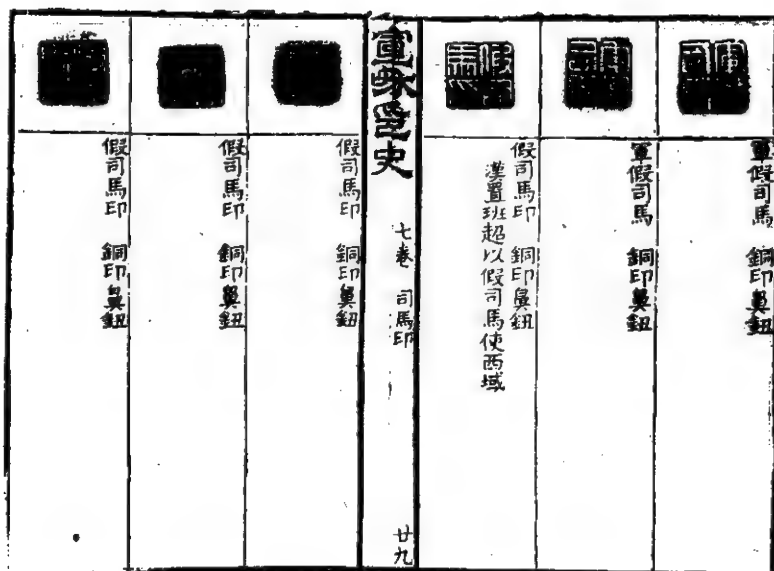 軍假司馬　銅印鼻鈕
軍假司馬　銅印鼻鈕
假司馬印　銅印鼻鈕
漢置班超以假司馬使西域
宣和印史
七卷　司馬印
廿九
假司馬印　銅印鼻鈕
假司馬印　銅印鼻鈕
假司馬印　銅印鼻鈕